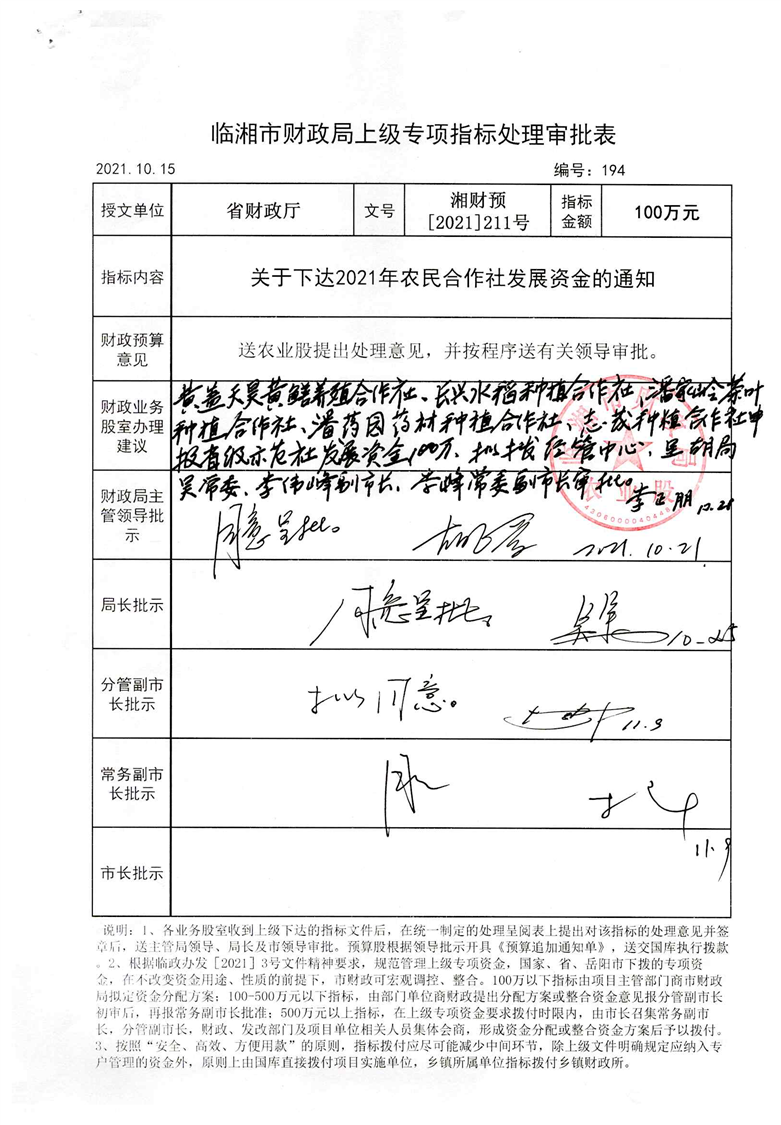 临湘市财政局上级专项指标处理审批表
2021.10.15 编号：194
授文单位 省财政厅 文号 湘财预[2021]211号 指标金额 100万元
指标内容 关于下达2021年农民合作社发展资金的通知
财政预算意见 送农业股提出处理意见，并按程序送有关领导审批。
财政业务股室办理建议
黄盖天昊黄鳝养殖合作社、长兴水稻种植合作社、潘家岭茶叶
种植合作社、潘药园药材种植合作社、志茂种植合作社申
报省级示范社发展资金100万，拟拨经管中心，呈胡局
吴常委、李伟峰副市长、李峰常委副市长审批。
10.21
农业股
43060000040448
财政局主管领导批示 同意呈批。 2021.10.21
局长批示 同意呈批。 10-25
分管副市长批示 拟同意。 11.9
常务副市长批示 同意 11.9
市长批示
说明：1、各业务股室收到上级下达的指标文件后，在统一制定的处理呈阅表上提出对该指标的处理意见并签
章后，送主管局领导、局长及市领导审批。预算股根据领导批示开具《预算追加通知单》，送交国库执行拨款
。2、根据临政办发［2021］3号文件精神要求，规范管理上级专项资金，国家、省、岳阳市下拨的专项资
金，在不改变资金用途、性质的前提下，市财政可宏观调控、整合。100万以下指标由项目主管部门商市财政
局拟定资金分配方案；100-500万元以下指标，由部门单位商财政提出分配方案或整合资金意见报分管副市长
初审后，再报常务副市长批准；500万元以上指标，在上级专项资金要求拨付时限内，由市长召集常务副市
长，分管副市长，财政、发改部门及项目单位相关人员集体会商，形成资金分配或整合资金方案后予以拨付。
3、按照“安全、高效、方便用款”的原则，指标拨付应尽可能减少中间环节，除上级文件明确规定应纳入专
户管理的资金外，原则上由国库直接拨付项目实施单位，乡镇所属单位指标拨付乡镇财政所。